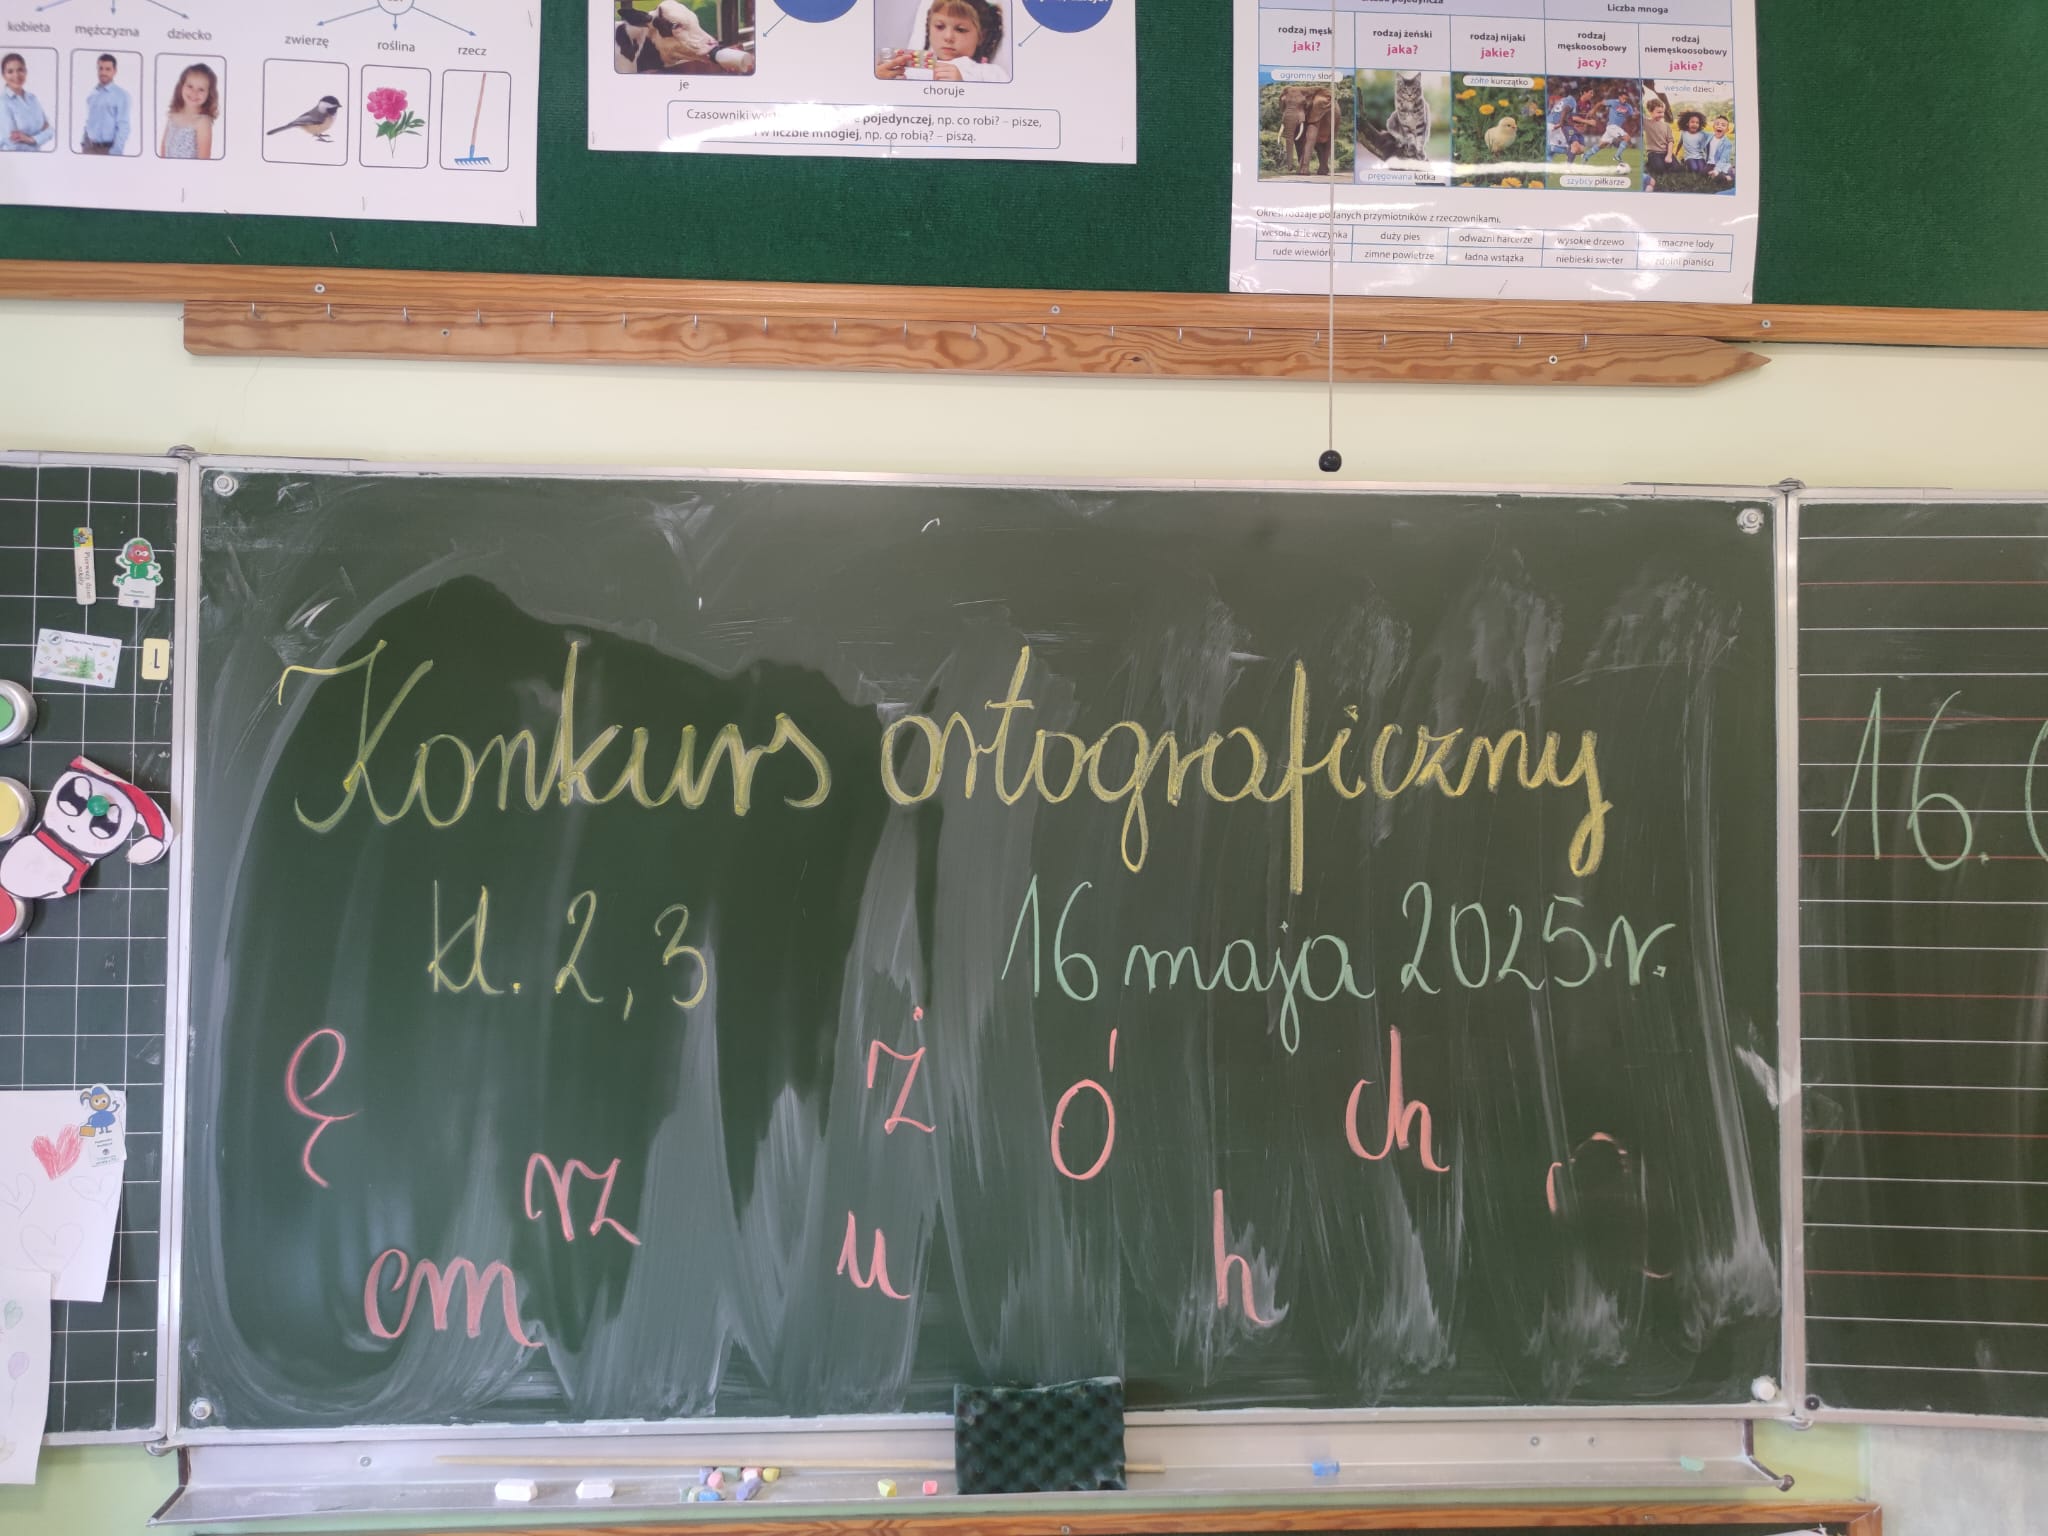 kobieta mężczyzna dziecko
zwierzę roślina rzecz
je choruje
Czasowniki pojedynczej, np. co robi? – pisze,
i w liczbie mnogiej, np. co robią? – piszą.
Liczba mnoga
rodzaj męsk rodzaj żeński rodzaj nijaki rodzaj męskoosobowy rodzaj niemęskoosobowy
jaki? jaka? jakie? jacy? jakie?
ogromny słoń pręgowana kotka żółte kurczątko szybcy piłkarze wesołe dzieci
Określ rodzaje podanych przymiotników z rzeczownikami.
wesoła dziewczynka duży pies odważni harcerze wysokie drzewo smaczne lody
rude wiewiórki zimne powietrze ładna wstążka niebieski sweter zdolni pianiści
L
Konkurs ortograficzny
kl. 2, 3 16 maja 2025 r.
Ę ż ó ch
rz
em u h
16.